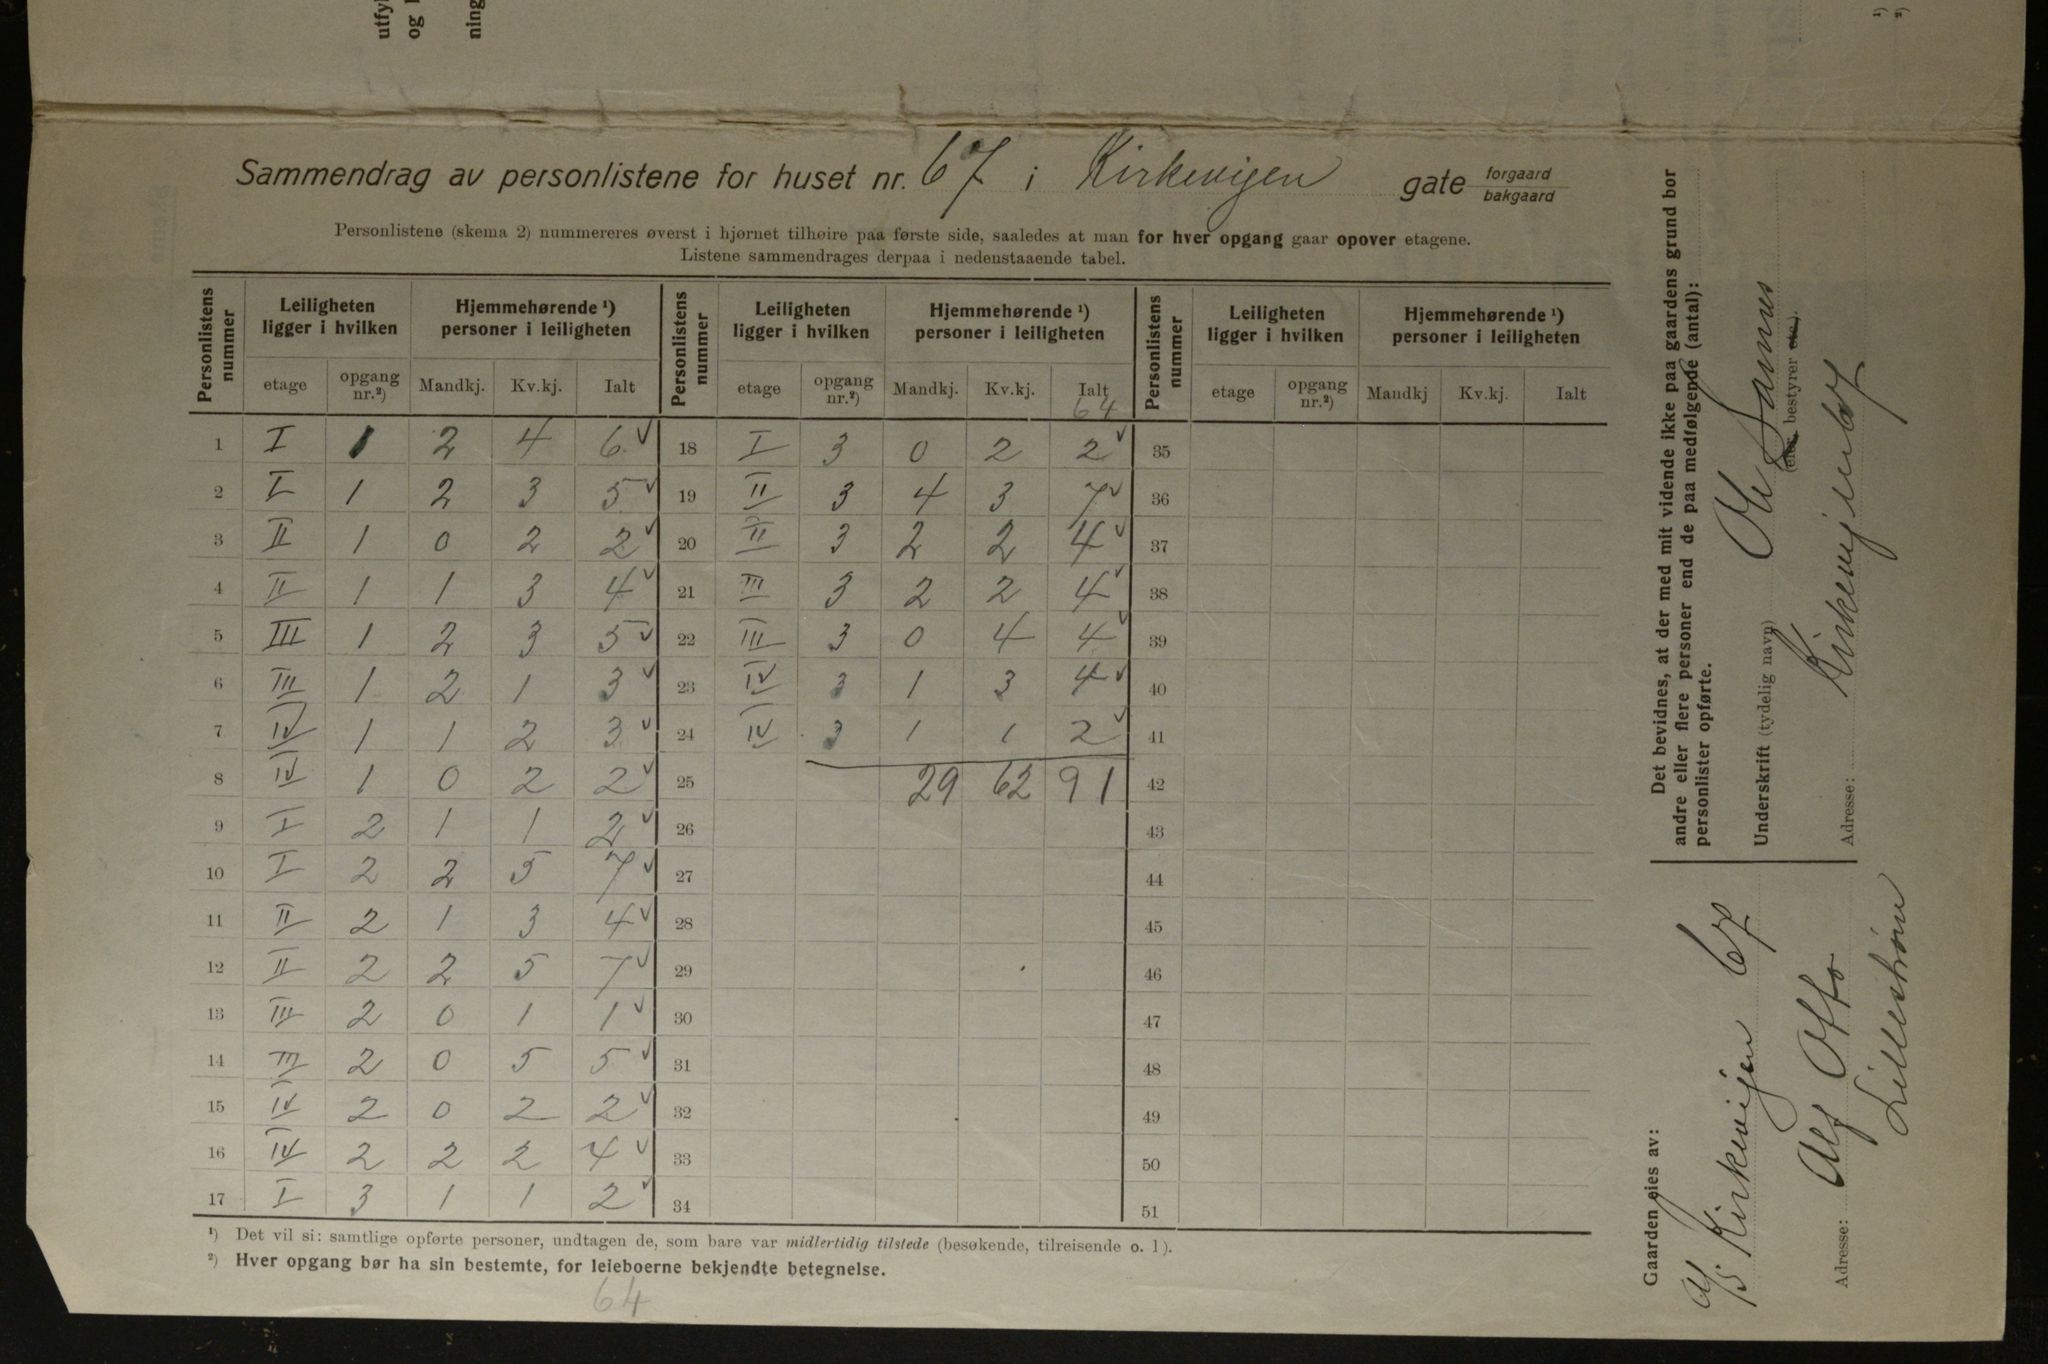 utfyl
og
ning
1)
2)
Sammendrag av personlistene for huset nr. 67 i Kirkeveien gate forgaard bakgaard
Personlistene (skema 2) nummereres øverst i hjørnet tilhøire paa første side, saaledes at man for hver opgang gaar opover etagene.
Listene sammendrages derpaa i nedenstaaende tabel.
Personlistens nummer | Leiligheten ligger i hvilken | Hjemmehørende ¹) personer i leiligheten | Personlistens nummer | Leiligheten ligger i hvilken | Hjemmehørende ¹) personer i leiligheten | Personlistens nummer | Leiligheten ligger i hvilken | Hjemmehørende ¹) personer i leiligheten
etage | opgang nr.²) | Mandkj. | Kv.kj. | Ialt | etage | opgang nr.²) | Mandkj. | Kv.kj. | Ialt | etage | opgang nr.²) | Mandkj | Kv.kj. | Ialt
64
1 | I | 1 | 2 | 4 | 6 ✓ | 18 | I | 3 | 0 | 2 | 2 ✓ | 35
2 | I | 1 | 2 | 3 | 5 ✓ | 19 | II | 3 | 4 | 3 | 7 ✓ | 36
3 | II | 1 | 0 | 2 | 2 ✓ | 20 | II | 3 | 2 | 2 | 4 ✓ | 37
4 | II | 1 | 1 | 3 | 4 ✓ | 21 | III | 3 | 2 | 2 | 4 ✓ | 38
5 | III | 1 | 2 | 3 | 5 ✓ | 22 | III | 3 | 0 | 4 | 4 ✓ | 39
6 | III | 1 | 2 | 1 | 3 ✓ | 23 | IV | 3 | 1 | 3 | 4 ✓ | 40
7 | IV | 1 | 1 | 2 | 3 ✓ | 24 | IV | 3 | 1 | 1 | 2 ✓ | 41
8 | IV | 1 | 0 | 2 | 2 ✓ | 25 | | | 29 | 62 | 91 | 42
9 | I | 2 | 1 | 1 | 2 ✓ | 26 | 43
10 | I | 2 | 2 | 5 | 7 ✓ | 27 | 44
11 | II | 2 | 1 | 3 | 4 ✓ | 28 | 45
12 | II | 2 | 2 | 5 | 7 ✓ | 29 | 46
13 | III | 2 | 0 | 1 | 1 ✓ | 30 | 47
14 | III | 2 | 0 | 5 | 5 ✓ | 31 | 48
15 | IV | 2 | 0 | 2 | 2 ✓ | 32 | 49
16 | IV | 2 | 2 | 2 | 4 ✓ | 33 | 50
17 | I | 3 | 1 | 1 | 2 ✓ | 34 | 51
¹) Det vil si: samtlige opførte personer, undtagen de, som bare var midlertidig tilstede (besøkende, tilreisende o. l).
²) Hver opgang bør ha sin bestemte, for leieboerne bekjendte betegnelse.
64
Det bevidnes, at der med mit vidende ikke paa gaardens grund bor
andre eller flere personer end de paa medfølgende (antal):
personlister opførte.
Underskrift (tydelig navn) Ole
(eier, bestyrer etc.).
Adresse: Kirkeveien 67
Gaarden eies av:
A/S Kirkeveien 67
Adresse: Alf Otto
Lillestrøm